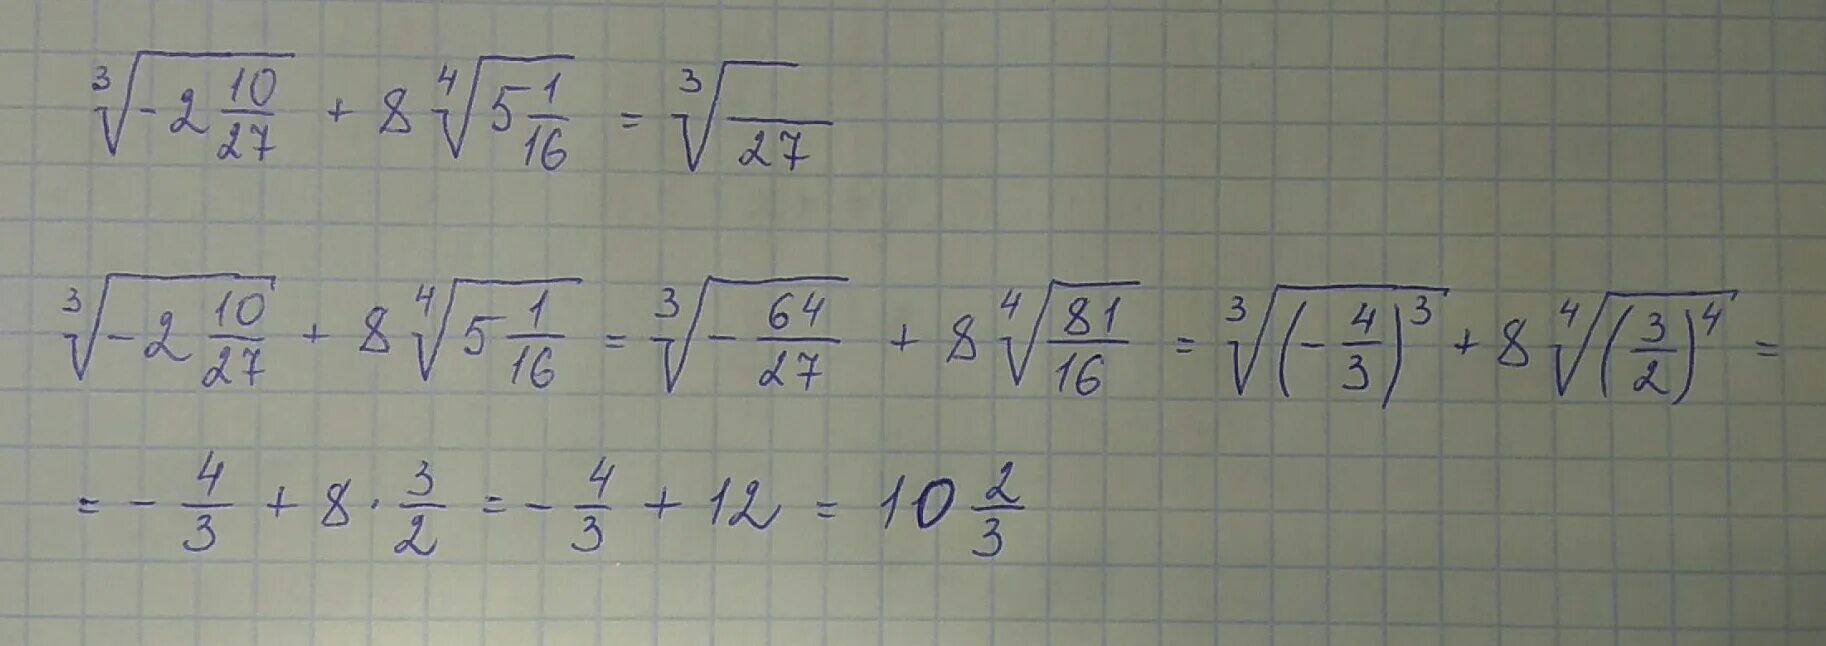 ∛(-2 10/27) + 8 ∜(5 1/16) = ∛( /27)
∛(-2 10/27) + 8 ∜(5 1/16) = ∛(-64/27) + 8 ∜(81/16) = ∛((-4/3)³) + 8 ∜((3/2)⁴) =
= -4/3 + 8 · 3/2 = -4/3 + 12 = 10 2/3